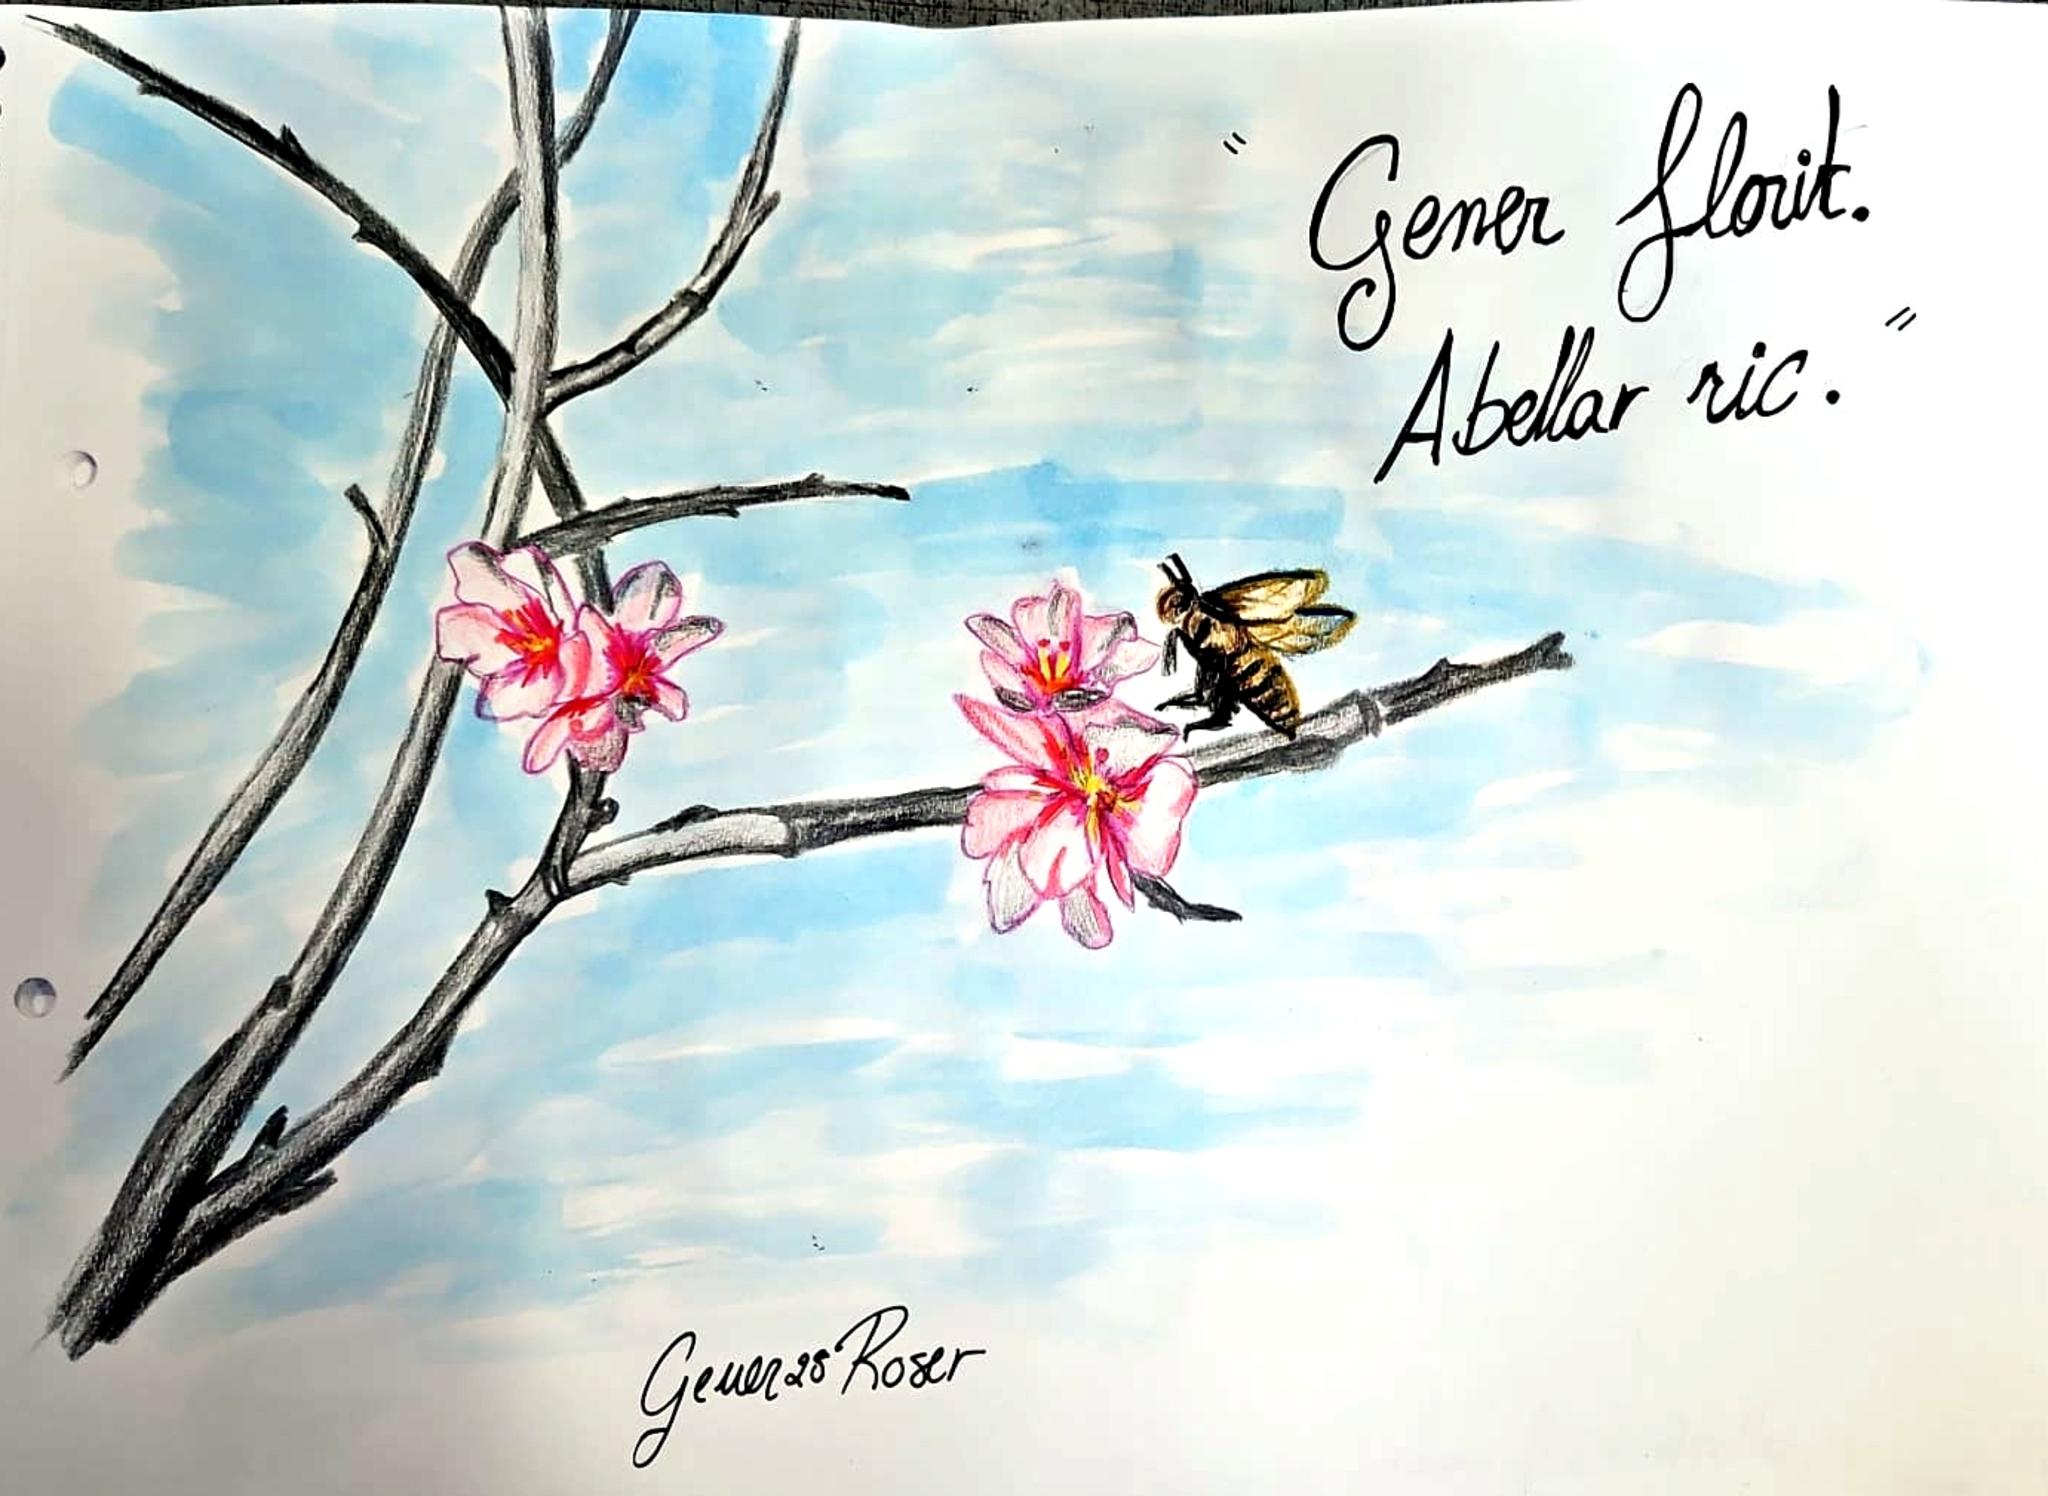 "Gener florit.
Abellar ric."
Gener 28 Roser